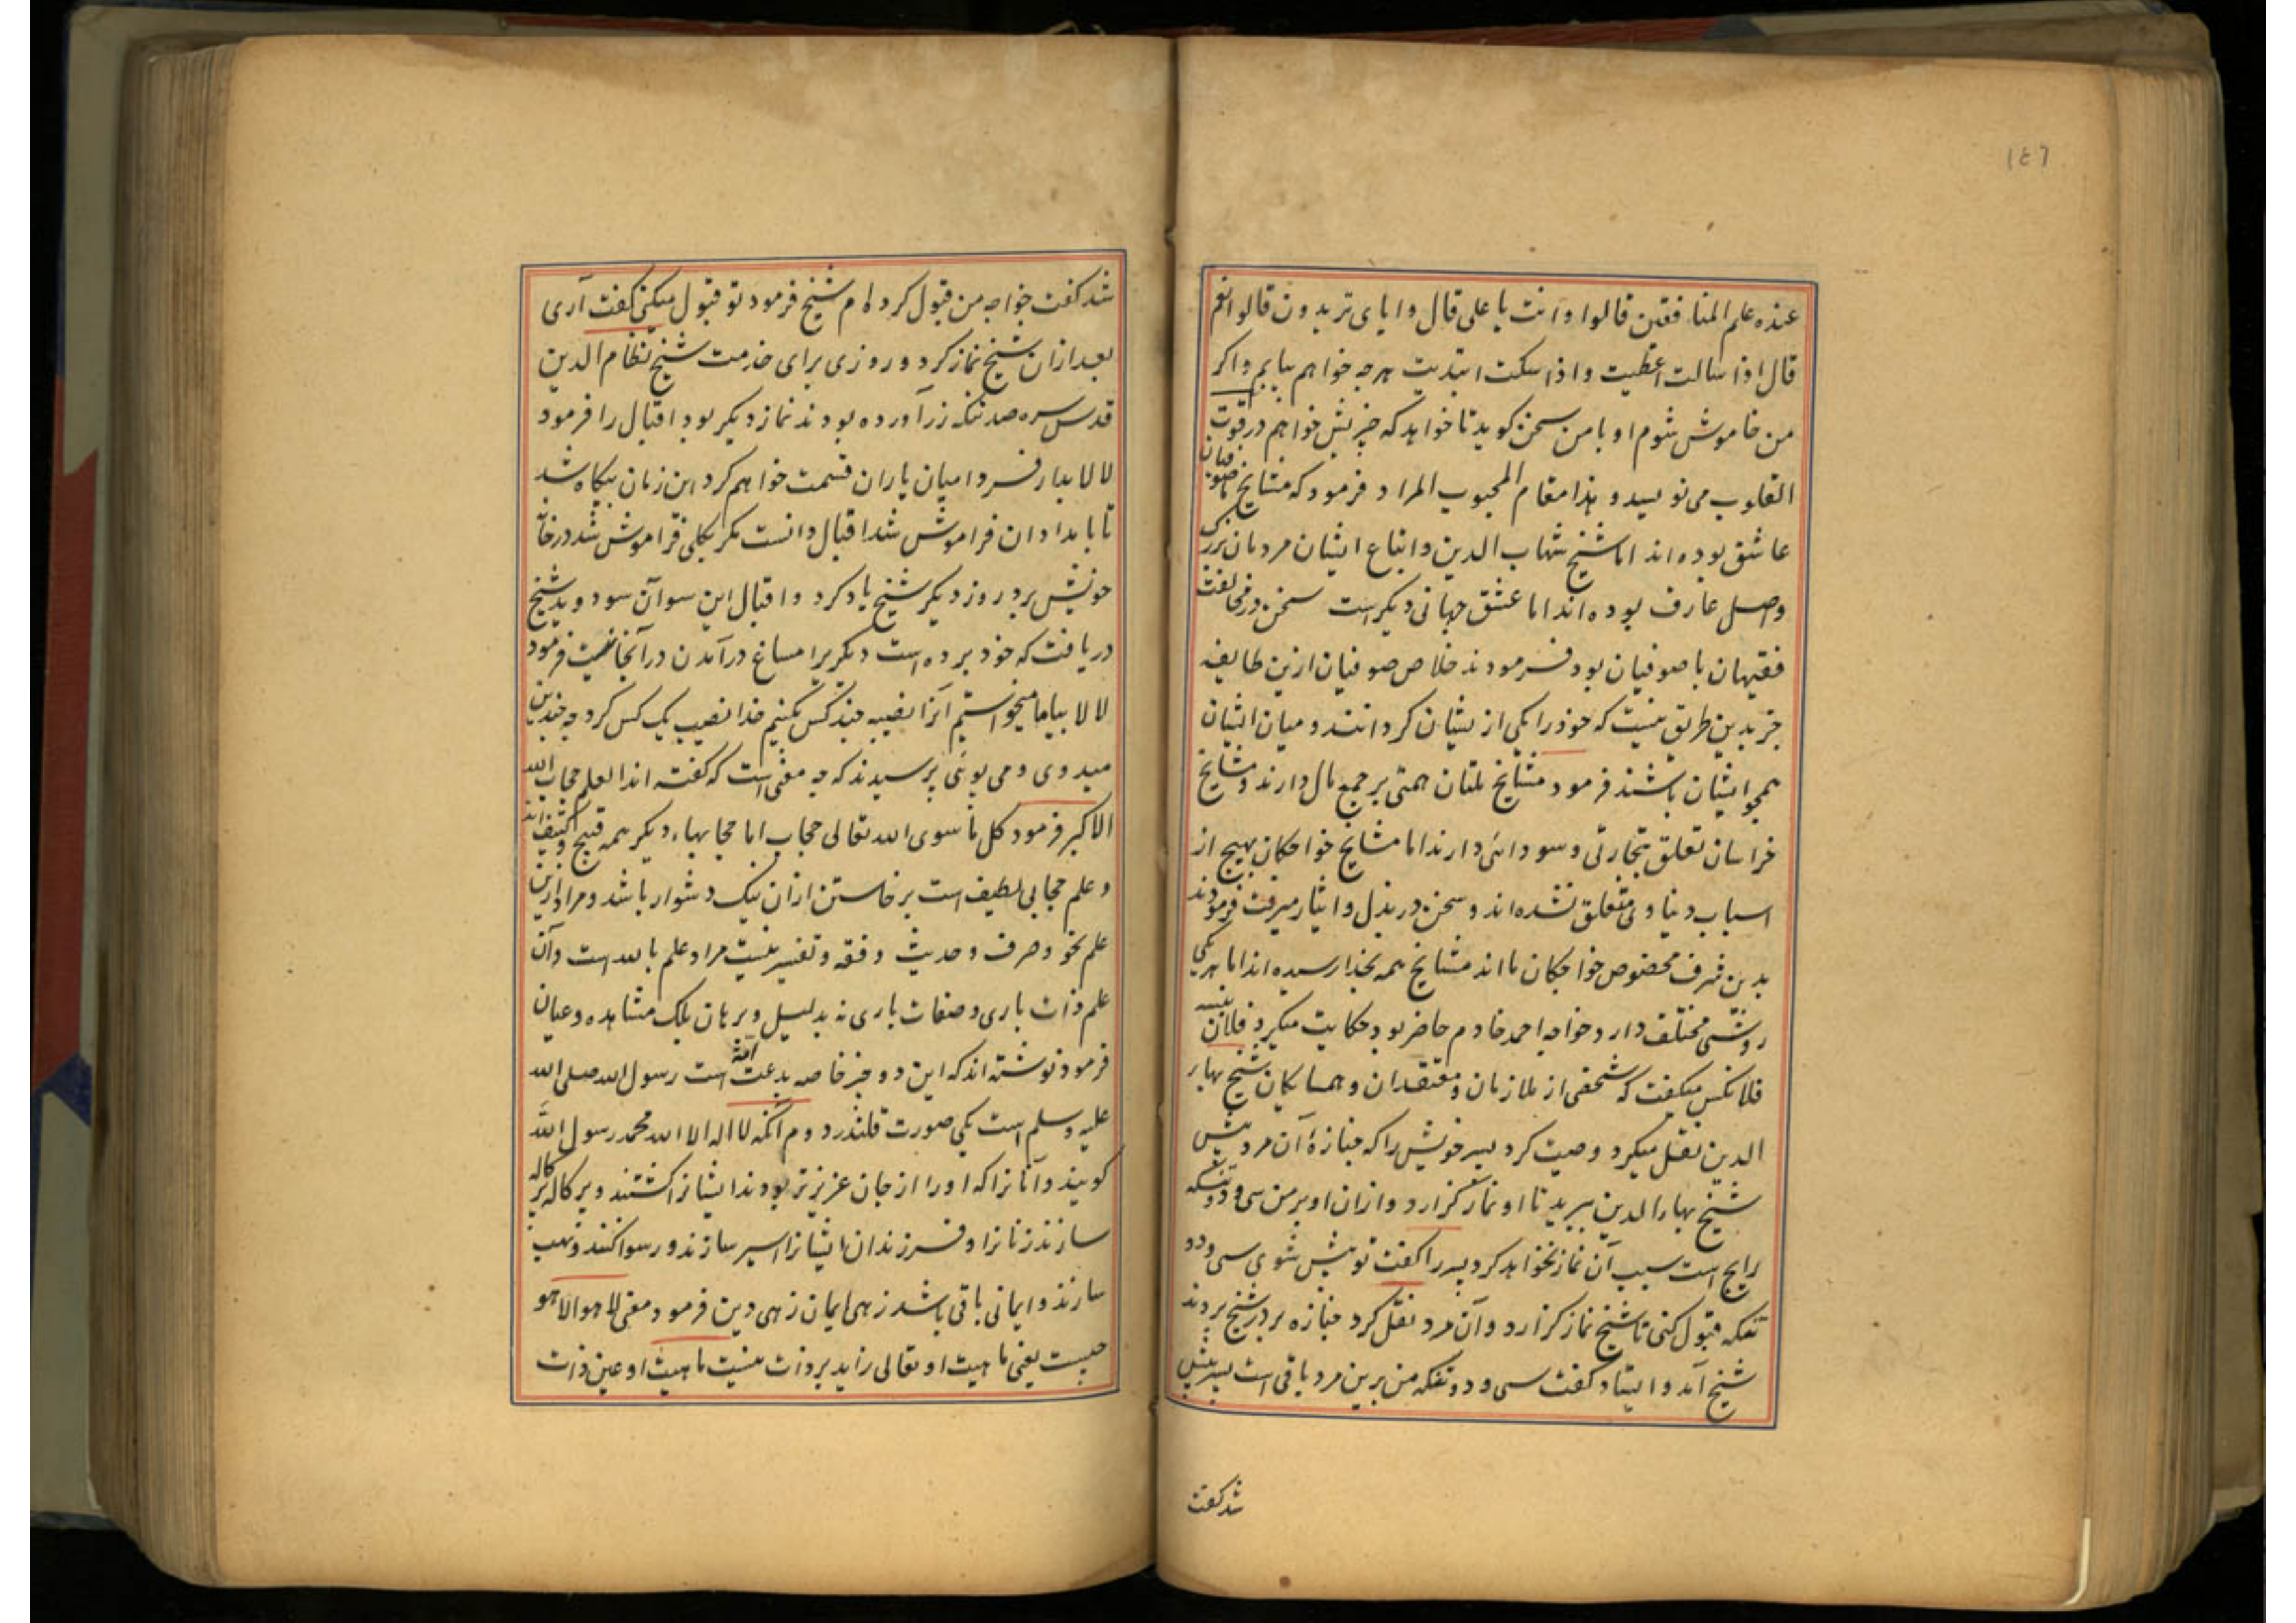 ١٤٦
عنده علم المنافقین قالوا وانت یا علی قال وایای تریدون قالوا نعم
قال اذا سالت اعطیت واذا سکت ابتدیت هرچه خواهم بیابم واکر
من خاموش شوم او با من سخن کوید تا خواهد که چیزیش خواهم در قوت
القلوب می نویسد و هذا مقام المحبوب المراد فرمود که مشایخ ما صوفیان
عاشق بوده اند اما شیخ شهاب الدین واتباع ایشان مردمان بزرک
واصل عارف بوده اند اما عشق جهانی دیکر است سخن در مخالفت
فقیهان با صوفیان بود فرمودند خلاص صوفیان ازین طایفه
جز بدین طریق نیست که خود را یکی از یشان کردانند و میان ایشان
همچو ایشان باشند فرمود مشایخ ملتان همتی بر جمع مال دارند و مشایخ
خراسان تعلق تجارتی و سودائی دارند اما مشایخ خواجکان بهیچ از
اسباب دنیاوی متعلق نشده اند و سخن در بذل وایثار میرفت فرمودند
بدین شرف مخصوص خواجکان ما اند مشایخ همه بخدا رسیده اند اما هر یکی
روشی مختلف دارد خواجه احمد خادم حاضر بود حکایت میکرد فلان بنیسه
فلانکس میکفت که شخصی از ملازمان و معتقدان و همسایکان شیخ بهاء
الدین نقل میکرد وصیت کرد پسر خویش را که جنازهٔ آن مرد پیش
شیخ بهاءالدین ببرید تا او نماز کزارد وازان او برمن سی و دو تنکه
رایج است سبب آن نماز نخواهد کرد پسر را کفت تو پیش شوی سی و دو
تنکه قبول کنی تا شیخ نماز کزارد وآن مرد نقل کرد جنازه بر در شیخ بردند
شیخ آمد وایستاد کفت سی و دو تنکه من برین مرد باقی است پسر پیش
شد کفت
شد کفت خواجه من قبول کرده ام شیخ فرمود تو قبول میکنی کفت آری
بعد ازان شیخ نماز کرد و روزی برای خدمت شیخ نظام الدین
قدس سره صد تنکه زر آورده بودند نماز دیکر بود اقبال را فرمود
لالا بدار فردا میان یاران قسمت خواهم کرد این زمان بیکاه شد
تا بامدادان فراموش شد اقبال دانست مکر بکلی فراموش شد در خانه
خویش برد روز دیکر شیخ یاد کرد واقبال این سو آن سو دوید شیخ
دریافت که خود برده است دیکریرا مساغ درآمدن درآنجا نیست فرمود
لالا بیا ما میخواستیم آنرا نصیبه چند کس بکنیم خدا نصیب یک کس کرد چه چندین
میدوی و می پوئی پرسیدند که چه معنی است که کفته اند العلم حجاب الله
الاکبر فرمود کل ما سوی الله تعالی حجاب اما حجابهاء دیکر همه قبیح و کثیف اند
وعلم حجابی لطیف است برخاستن ازان نیک دشوار باشد و مراد ازین
علم نحو و صرف و حدیث و فقه و تفسیر نیست مراد علم بالله است وآن
علم ذات باری و صفات باری نه بدلیل و برهان بلک مشاهده وعیان
فرمود نوشته اند که این دو چیز خاصه بدعت امة است رسول الله صلی الله
علیه وسلم است یکی صورت قلندر دوم آنکه لا اله الا الله محمد رسول الله
کویند وآنانرا که او را از جان عزیزتر بودند ایشانرا کشتند و پرکاله پرکاله
سازند زنانرا و فرزندان ایشانرا اسیر سازند و رسوا کنند و نهب
سازند وایمانی باقی باشد زهی ایمان زهی دین فرمود معنی لا هو الا هو
چیست یعنی ماهیت او تعالی زاید بر ذات نیست ماهیت او عین ذات